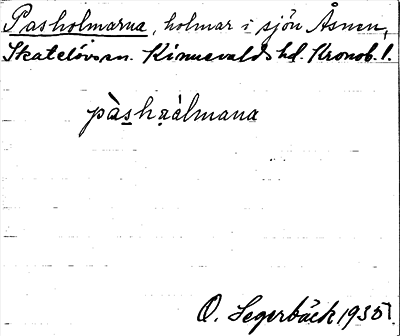 Pasholmarna, holmar i sjön Åsnen,
Skatelövs sn. Kinnevalds hd. Kronob. l.
pàshꜳálmana
O. Segerbäck 1935.